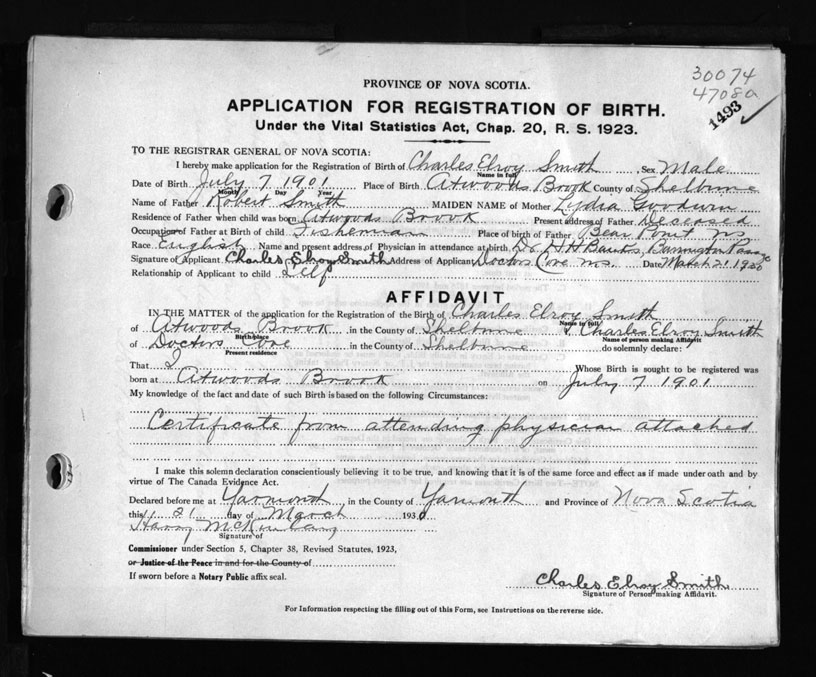 30074
47080
1493
PROVINCE OF NOVA SCOTIA.
APPLICATION FOR REGISTRATION OF BIRTH.
Under the Vital Statistics Act, Chap. 20, R. S. 1923.
TO THE REGISTRAR GENERAL OF NOVA SCOTIA:
I hereby make application for the Registration of Birth of Charles Elroy Smith Sex Male
Name in full
Date of Birth July 7 1901 Place of Birth Atwoods Brook County of Shelburne
Month Day Year
Name of Father Robert Smith MAIDEN NAME of Mother Lydia Goodwin
Residence of Father when child was born Atwoods Brook Present address of Father Deceased
Occupation of Father at Birth of child Fisherman Place of birth of Father Bear Point NS
Race English Name and present address of Physician in attendance at birth Dr H H Banks, Barrington Passage
Signature of Applicant Charles Elroy Smith Address of Applicant Doctors Cove N.S. Date March 21 1930
Relationship of Applicant to child Self
AFFIDAVIT
IN THE MATTER of the application for the Registration of Birth of Charles Elroy Smith
Name in full
of Atwoods Brook in the County of Shelburne I, Charles Elroy Smith
Birthplace Name of person making Affidavit
of Doctors Cove in the County of Shelburne do solemnly declare:
Present residence
That I Whose Birth is sought to be registered was
born at Atwoods Brook on July 7 1901
My knowledge of the fact and date of such Birth is based on the following Circumstances:
Certificate from attending physician attached
I make this solemn declaration conscientiously believing it to be true, and knowing that it is of the same force and effect as if made under oath and by
virtue of The Canada Evidence Act.
Declared before me at Yarmouth in the County of Yarmouth and Province of Nova Scotia
this 21 day of March 1930
Harry
Signature of
Commissioner under Section 5, Chapter 38, Revised Statutes, 1923,
or Justice of the Peace in and for the County of
If sworn before a Notary Public affix seal.
Charles Elroy Smith
Signature of Person making Affidavit.
For Information respecting the filling out of this Form, see Instructions on the reverse side.